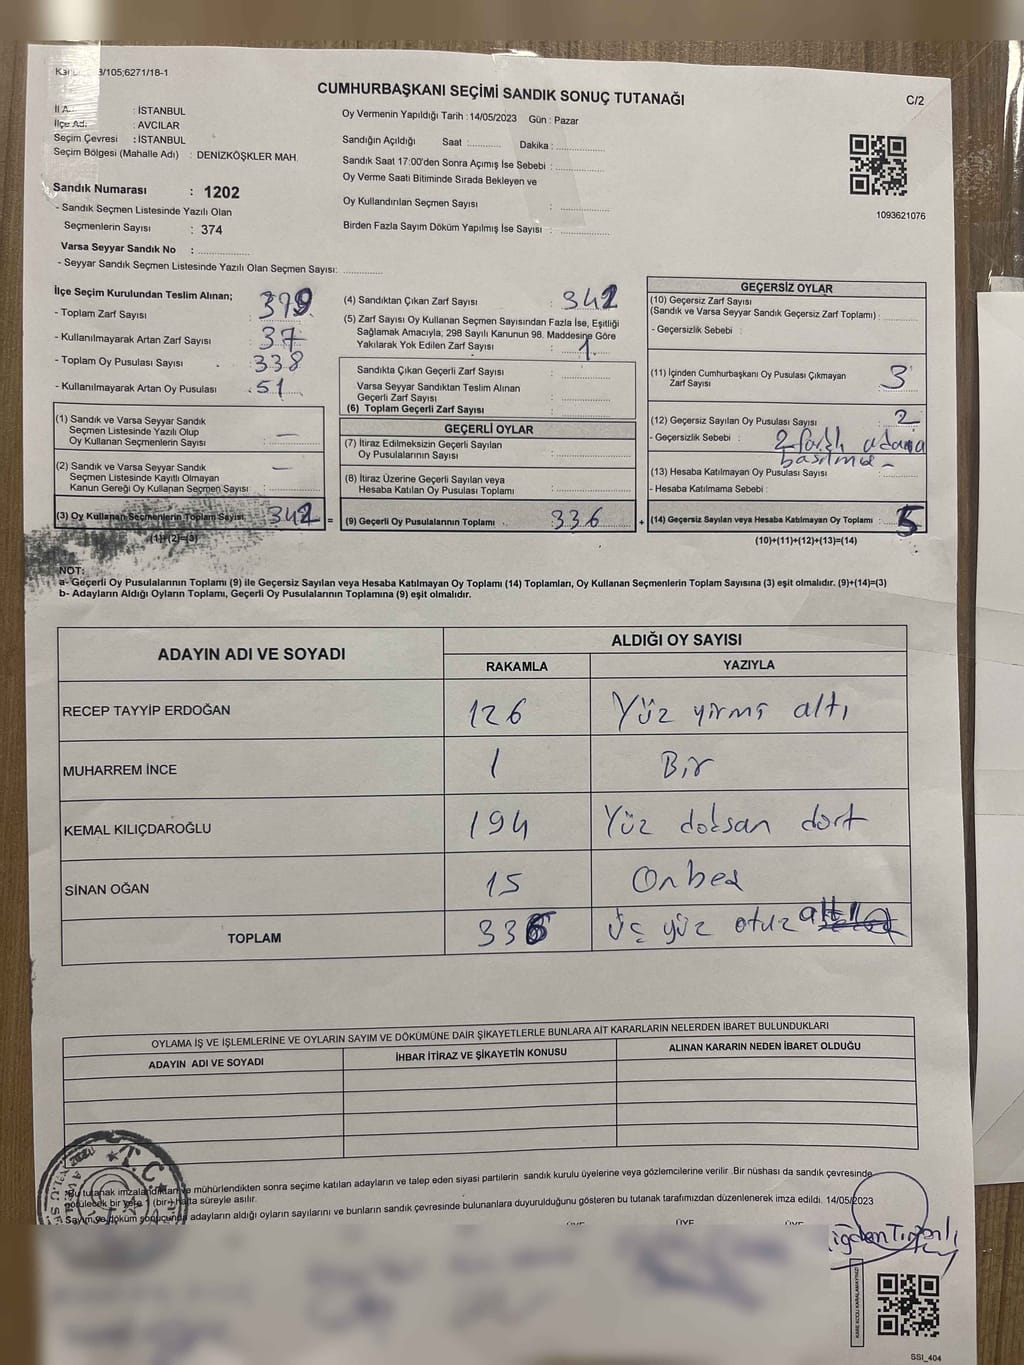 /105;6271/18-1
CUMHURBAŞKANI SEÇİMİ SANDIK SONUÇ TUTANAĞI
C/2
İl A : İSTANBUL
İlçe Adı : AVCILAR
Seçim Çevresi : İSTANBUL
Seçim Bölgesi (Mahalle Adı) : DENİZKÖŞKLER MAH.
Sandık Numarası : 1202
- Sandık Seçmen Listesinde Yazılı Olan
Seçmenlerin Sayısı : 374
Varsa Seyyar Sandık No :
- Seyyar Sandık Seçmen Listesinde Yazılı Olan Seçmen Sayısı:
Oy Vermenin Yapıldığı Tarih : 14/05/2023 Gün : Pazar
Sandığın Açıldığı Saat : Dakika :
Sandık Saat 17:00'den Sonra Açımış İse Sebebi :
Oy Verme Saati Bitiminde Sırada Bekleyen ve
Oy Kullandırılan Seçmen Sayısı :
Birden Fazla Sayım Döküm Yapılmış İse Sayısı :
1093621076
İlçe Seçim Kurulundan Teslim Alınan;
- Toplam Zarf Sayısı : 379
- Kullanılmayarak Artan Zarf Sayısı : 37
- Toplam Oy Pusulası Sayısı : 338
- Kullanılmayarak Artan Oy Pusulası : 51
(1) Sandık ve Varsa Seyyar Sandık
Seçmen Listesinde Yazılı Olup
Oy Kullanan Seçmenlerin Sayısı : —
(2) Sandık ve Varsa Seyyar Sandık
Seçmen Listesinde Kayıtlı Olmayan
Kanun Gereği Oy Kullanan Seçmen Sayısı : —
(3) Oy Kullanan Seçmenlerin Toplam Sayısı : 342 =
(1)+(2)=(3)
(4) Sandıktan Çıkan Zarf Sayısı : 342
(5) Zarf Sayısı Oy Kullanan Seçmen Sayısından Fazla İse, Eşitliği
Sağlamak Amacıyla, 298 Sayılı Kanunun 98. Maddesine Göre
Yakılarak Yok Edilen Zarf Sayısı : 1
Sandıkta Çıkan Geçerli Zarf Sayısı :
Varsa Seyyar Sandıktan Teslim Alınan
Geçerli Zarf Sayısı :
(6) Toplam Geçerli Zarf Sayısı :
GEÇERLİ OYLAR
(7) İtiraz Edilmeksizin Geçerli Sayılan
Oy Pusulalarının Sayısı :
(8) İtiraz Üzerine Geçerli Sayılan veya
Hesaba Katılan Oy Pusulası Toplamı :
(9) Geçerli Oy Pusulalarının Toplamı : 336 +
GEÇERSİZ OYLAR
(10) Geçersiz Zarf Sayısı
(Sandık ve Varsa Seyyar Sandık Geçersiz Zarf Toplamı) :
- Geçersizlik Sebebi :
(11) İçinden Cumhurbaşkanı Oy Pusulası Çıkmayan
Zarf Sayısı : 3
(12) Geçersiz Sayılan Oy Pusulası Sayısı : 2
- Geçersizlik Sebebi : 2 farklı adama
basılmış -
(13) Hesaba Katılmayan Oy Pusulası Sayısı :
- Hesaba Katılmama Sebebi :
(14) Geçersiz Sayılan veya Hesaba Katılmayan Oy Toplamı : 5
(10)+(11)+(12)+(13)=(14)
NOT:
a- Geçerli Oy Pusulalarının Toplamı (9) ile Geçersiz Sayılan veya Hesaba Katılmayan Oy Toplamı (14) Toplamları, Oy Kullanan Seçmenlerin Toplam Sayısına (3) eşit olmalıdır. (9)+(14)=(3)
b- Adayların Aldığı Oyların Toplamı, Geçerli Oy Pusulalarının Toplamına (9) eşit olmalıdır.
ADAYIN ADI VE SOYADI
ALDIĞI OY SAYISI
RAKAMLA YAZIYLA
RECEP TAYYİP ERDOĞAN 126 Yüz yirmi altı
MUHARREM İNCE 1 Bir
KEMAL KILIÇDAROĞLU 194 Yüz doksan dört
SİNAN OĞAN 15 Onbeş
TOPLAM 336 üç yüz otuz altı
OYLAMA İŞ VE İŞLEMLERİNE VE OYLARIN SAYIM VE DÖKÜMÜNE DAİR ŞİKAYETLERLE BUNLARA AİT KARARLARIN NELERDEN İBARET BULUNDUKLARI
ADAYIN ADI VE SOYADI İHBAR İTİRAZ VE ŞİKAYETİN KONUSU ALINAN KARARIN NEDEN İBARET OLDUĞU
T.C.
Bu tutanak imzalandıktan ve mühürlendikten sonra seçime katılan adayların ve talep eden siyasi partilerin sandık kurulu üyelerine veya gözlemcilerine verilir .Bir nüshası da sandık çevresinde
görülecek bir yere 1 (bir) hafta süreyle asılır.
Sayım ve döküm sonucunda adayların aldığı oyların sayılarını ve bunların sandık çevresinde bulunanlara duyurulduğunu gösteren bu tutanak tarafımızdan düzenlenerek imza edildi. 14/05/2023
ÜYE ÜYE ÜYE
KARE KODU KARALAMAYINIZ!
SSI_404